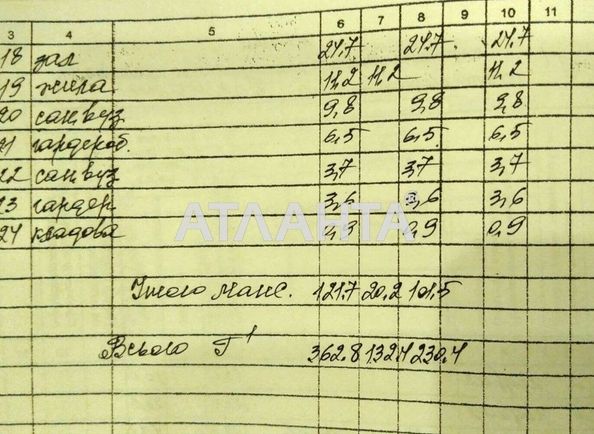 3 4 5 6 7 8 9 10 11
18 зал 24.7 24.7 24.7
19 жила 11,2 11,2 11,2
20 санвуз. 9,8 9,8 9,8
21 гардероб. 6,5 6,5 6,5
22 санвуз 3,7 3,7 3,7
23 гардер 3,6 3,6 3,6
24 кладова 0,9 0,9
АТЛАНТА
Итого манс. 121.7 20.2 101.5
Всього Г¹ 362.8 132.4 230.4